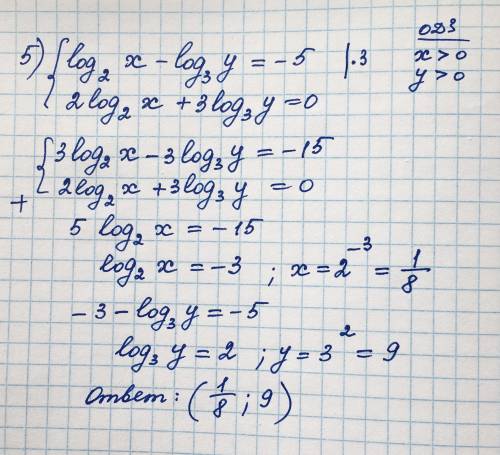 5) { log₂ x − log₃ y = −5 |·3
2 log₂ x + 3 log₃ y = 0
ОДЗ
x > 0
y > 0
{ 3 log₂ x − 3 log₃ y = −15
+ 2 log₂ x + 3 log₃ y = 0
5 log₂ x = −15
log₂ x = −3 ; x = 2⁻³ = 1/8
−3 − log₃ y = −5
log₃ y = 2 ; y = 3² = 9
Ответ: (1/8 ; 9)